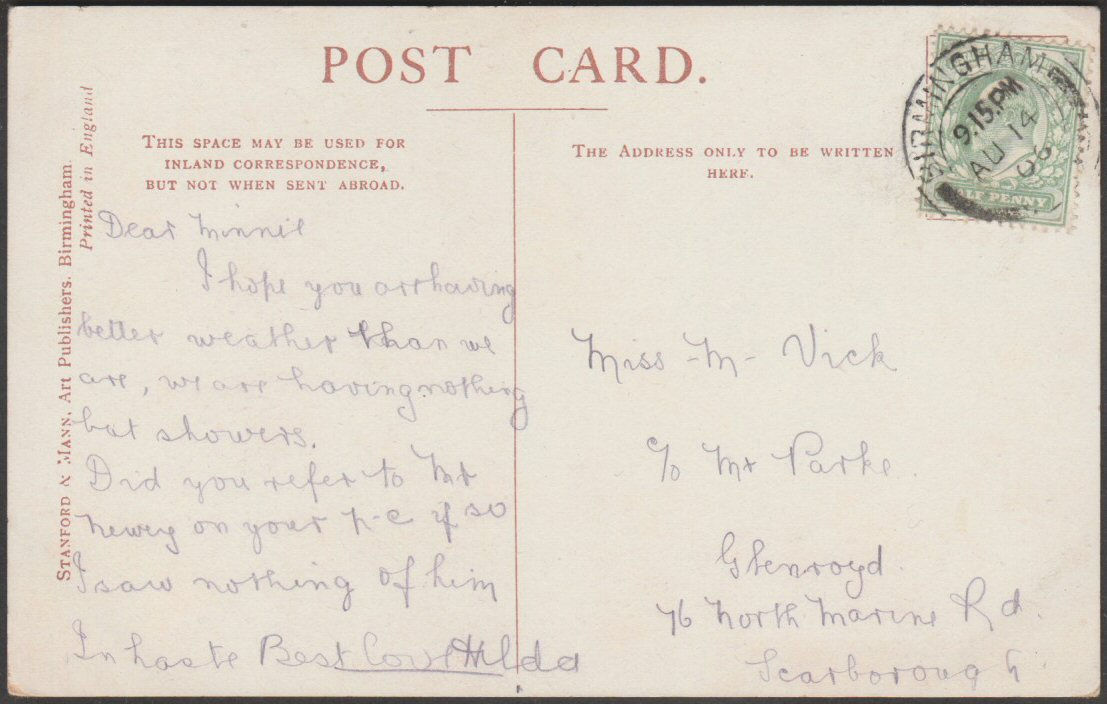 POST CARD.
THIS SPACE MAY BE USED FOR
INLAND CORRESPONDENCE,
BUT NOT WHEN SENT ABROAD.
THE ADDRESS ONLY TO BE WRITTEN
HERE.
STANFORD & MANN, Art Publishers. Birmingham.
Printed in England
BIRMINGHAM
9.15.PM
AU 14
06
HALF PENNY
Dear Minnie
I hope you are having
better weather than we
are, we are having nothing
but showers.
Did you refer to Mr
Newey on your p-c if so
I saw nothing of him
In haste Best Love Hilda
Miss -M- Vick
c/o Mr Parke.
Glenroyd.
76 North Marine Rd.
Scarborough